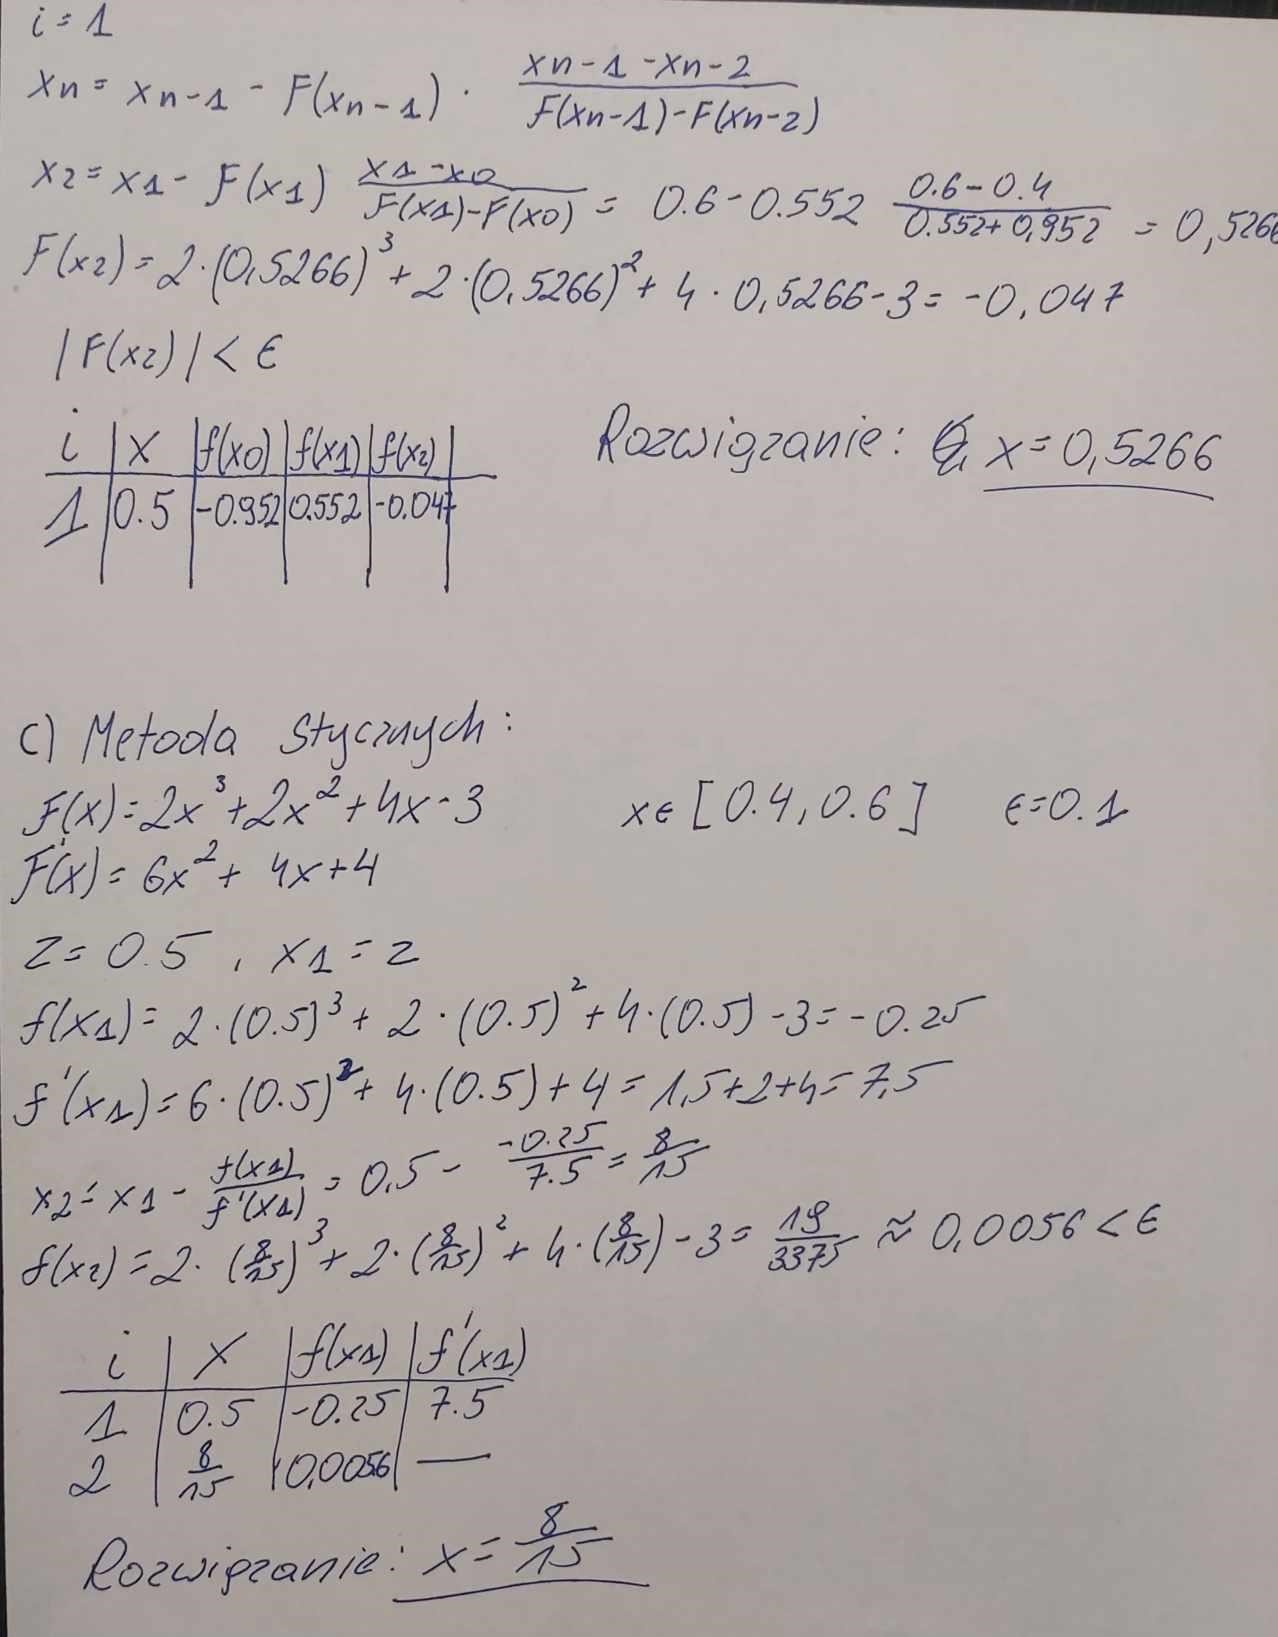 i = 1
xn = xn-1 - F(xn-1) · (xn-1 - xn-2)/(F(xn-1)-F(xn-2))
x2 = x1 - F(x1) (x1-x0)/(F(x1)-F(x0)) = 0.6 - 0.552 (0.6-0.4)/(0.552+0,952) = 0,5266
F(x2) = 2·(0,5266)³ + 2·(0,5266)² + 4·0,5266 - 3 = -0,047
|F(x2)| < ε
i | x | f(x0) | f(x1) | f(x2) |
1 | 0.5 | -0.952 | 0.552 | -0.047
Rozwiązanie: x = 0,5266
c) Metoda Stycznych:
f(x) = 2x³ + 2x² + 4x - 3 x ∈ [0.4, 0.6] ε = 0.1
F'(x) = 6x² + 4x + 4
z = 0.5, x1 = z
f(x1) = 2·(0.5)³ + 2·(0.5)² + 4·(0.5) - 3 = -0.25
f'(x1) = 6·(0.5)² + 4·(0.5) + 4 = 1,5+2+4 = 7,5
x2 = x1 - f(x1)/f'(x1) = 0,5 - -0.25/7.5 = 8/15
f(x2) = 2·(8/15)³ + 2·(8/15)² + 4·(8/15) - 3 = 19/3375 ≈ 0,0056 < ε
i | x | f(x1) | f'(x1)
1 | 0.5 | -0.25 | 7.5
2 | 8/15 | 0,0056 | —
Rozwiązanie: x = 8/15